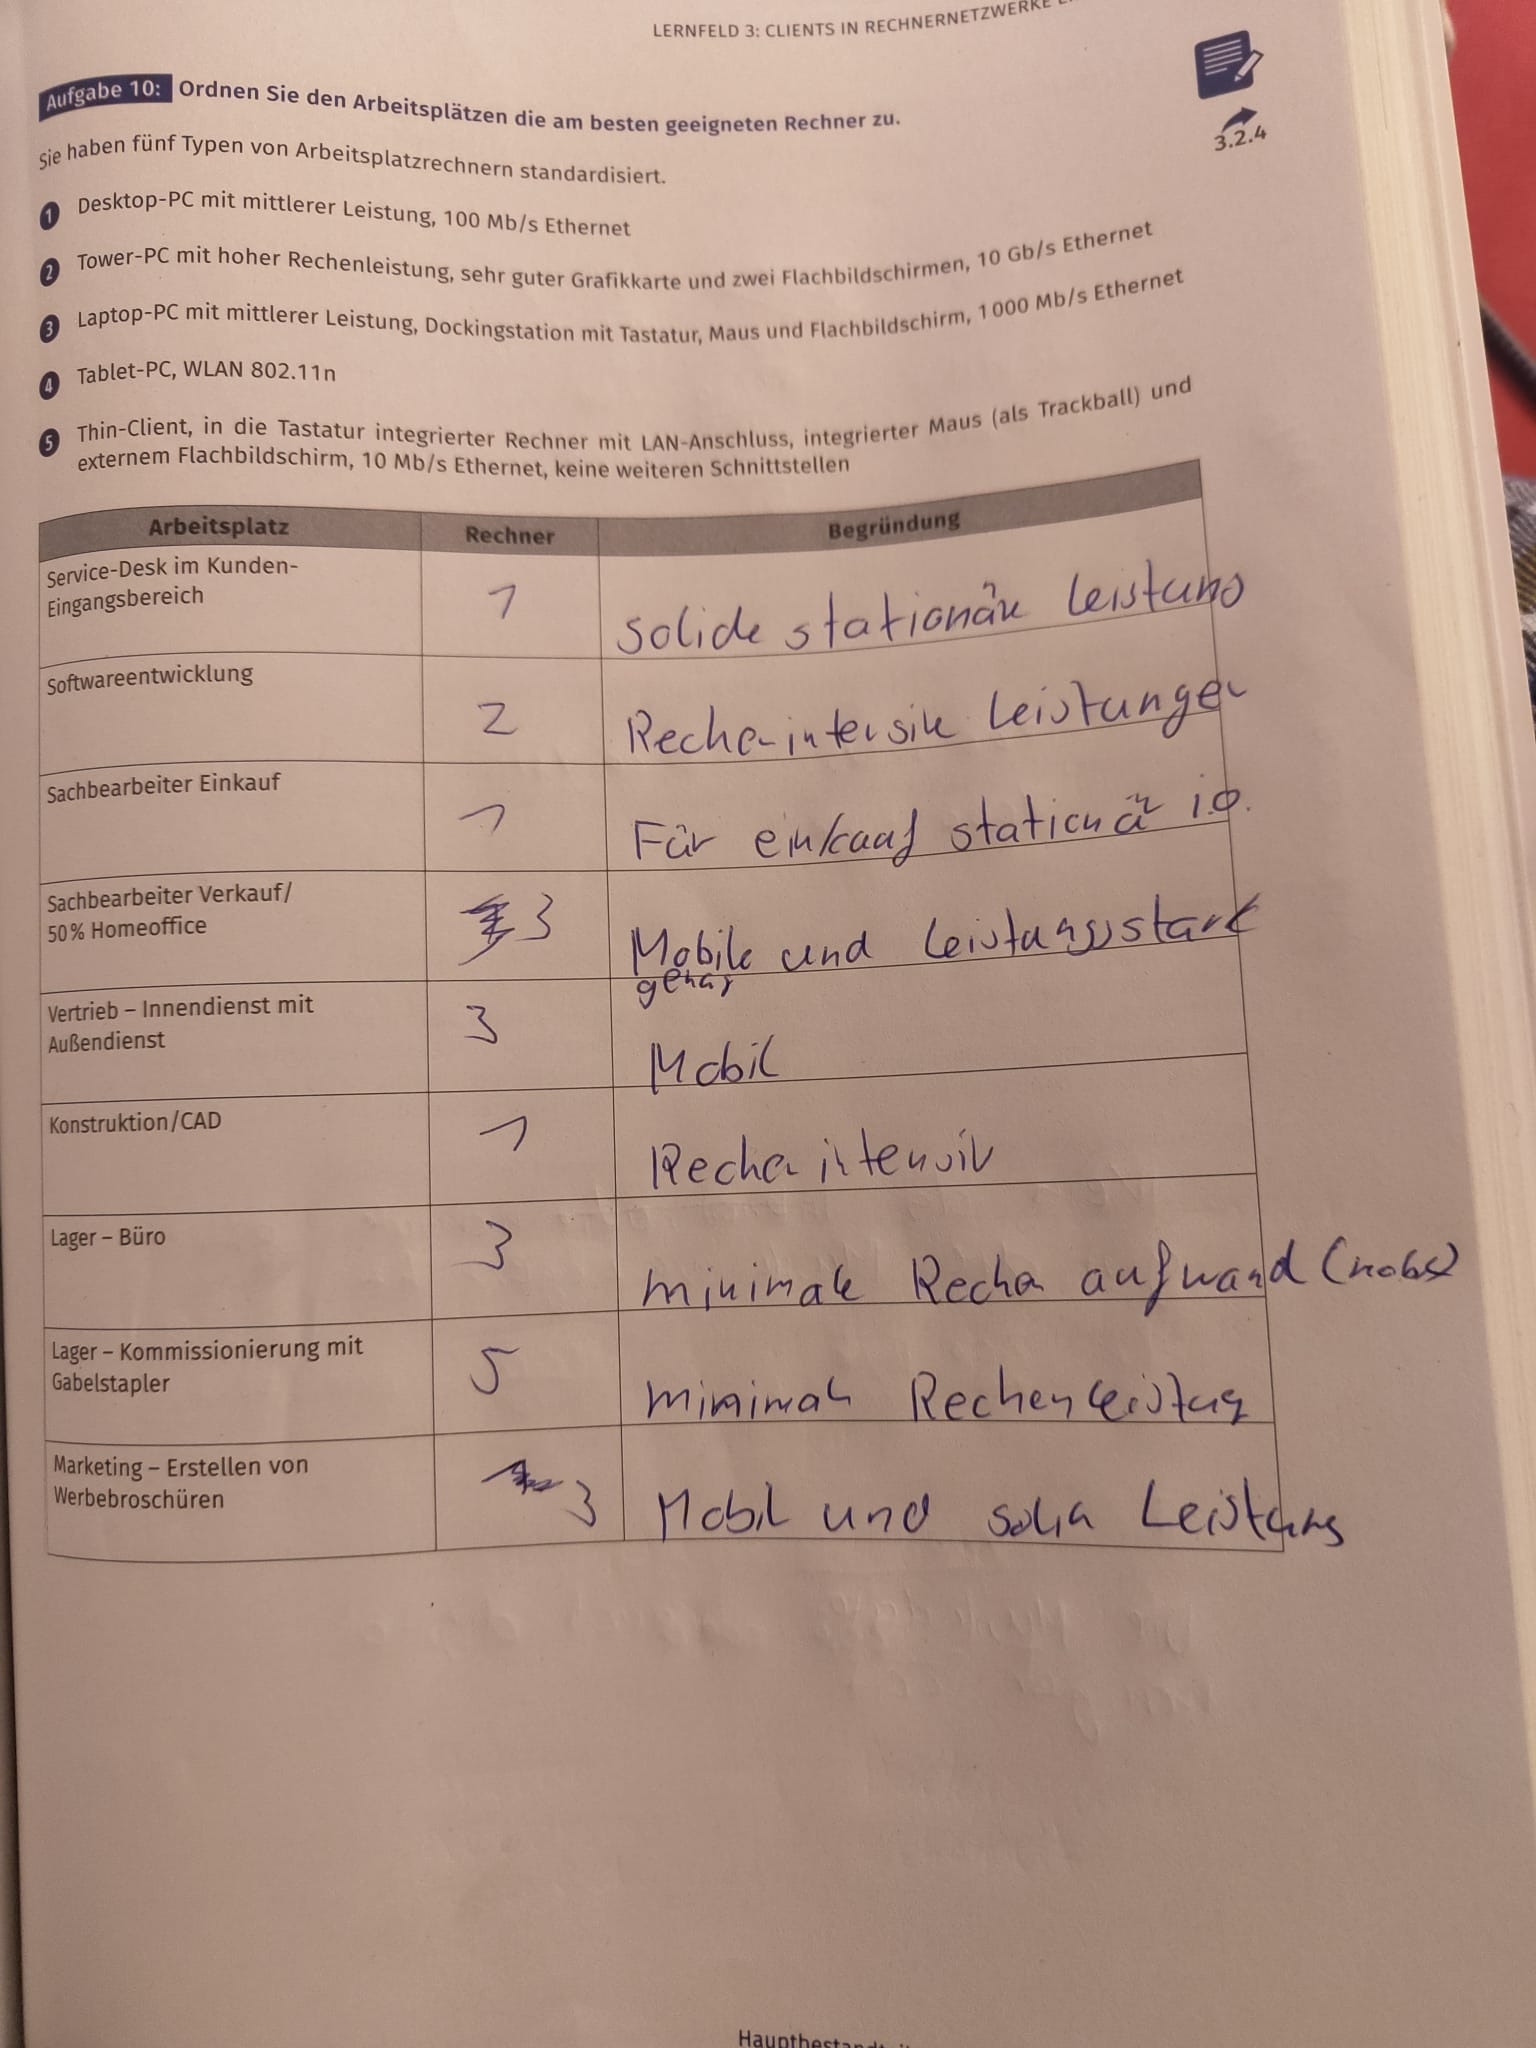 LERNFELD 3: CLIENTS IN RECHNERNETZWERKE
Aufgabe 10: Ordnen Sie den Arbeitsplätzen die am besten geeigneten Rechner zu.
3.2.4
Sie haben fünf Typen von Arbeitsplatzrechnern standardisiert.
1 Desktop-PC mit mittlerer Leistung, 100 Mb/s Ethernet
2 Tower-PC mit hoher Rechenleistung, sehr guter Grafikkarte und zwei Flachbildschirmen, 10 Gb/s Ethernet
3 Laptop-PC mit mittlerer Leistung, Dockingstation mit Tastatur, Maus und Flachbildschirm, 1 000 Mb/s Ethernet
4 Tablet-PC, WLAN 802.11n
5 Thin-Client, in die Tastatur integrierter Rechner mit LAN-Anschluss, integrierter Maus (als Trackball) und
externem Flachbildschirm, 10 Mb/s Ethernet, keine weiteren Schnittstellen
Arbeitsplatz Rechner Begründung
Service-Desk im Kunden-
Eingangsbereich
1
solide stationäre Leistung
Softwareentwicklung
2
Rechenintensive Leistungen
Sachbearbeiter Einkauf
1
Für einkauf stationär i.O.
Sachbearbeiter Verkauf/
50% Homeoffice
3
Mobile und Leistungsstark
genug
Vertrieb – Innendienst mit
Außendienst
3
Mobil
Konstruktion/CAD
1
Rechenintensiv
Lager – Büro
3
minimale Rechen aufwand
Lager – Kommissionierung mit
Gabelstapler
5
minimale Rechenleistung
Marketing – Erstellen von
Werbebroschüren
3
Mobil und Leistung